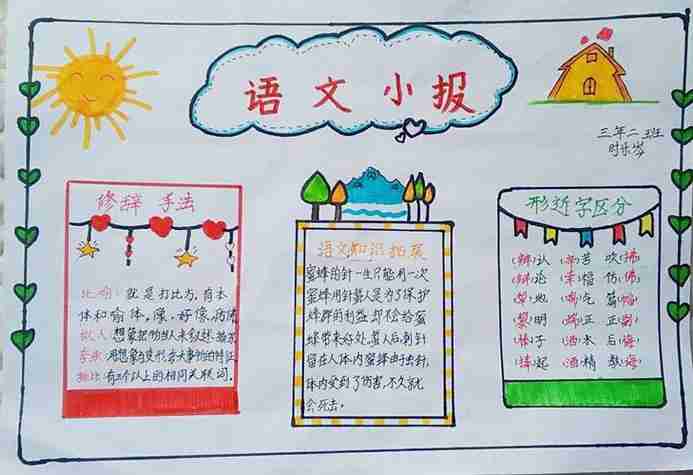 语文小报
三年二班
时乐岁
修辞手法
比喻：就是打比方，有本
体和喻体。像、好像、仿佛
拟人：想象把物当人来叙述
夸张：用想象与变形夸大事物的特征
排比：有三个以上的相同关联词。
语文知识拓展
蜜蜂的针一生只能用一次
蜜蜂用针蜇人是为了保护
蜂群的利益却不会给蜜
蜂带来好处，蜇人后刺针
留在人体内蜜蜂由于出针，
体内受到了伤害，不久就
会死去。
形近字区分
（辨）认 （辛）苦 吹（拂）
（辩）论 （幸）福 仿（佛）
（犁）地 篇（幅）
（黎）明 正 正（副）
子 （洒）水 后（悔）
（捧）起 （酒）精 教（诲）